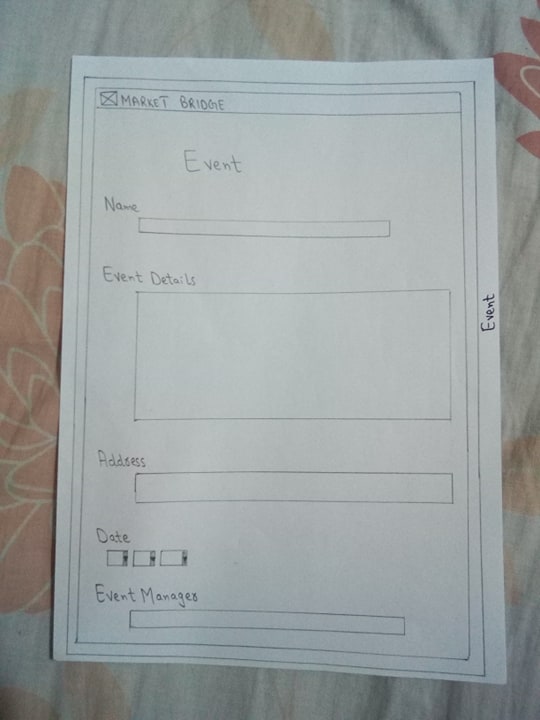 MARKET BRIDGE
Event
Name
Event Details
Address
Date
Event Manager
Event